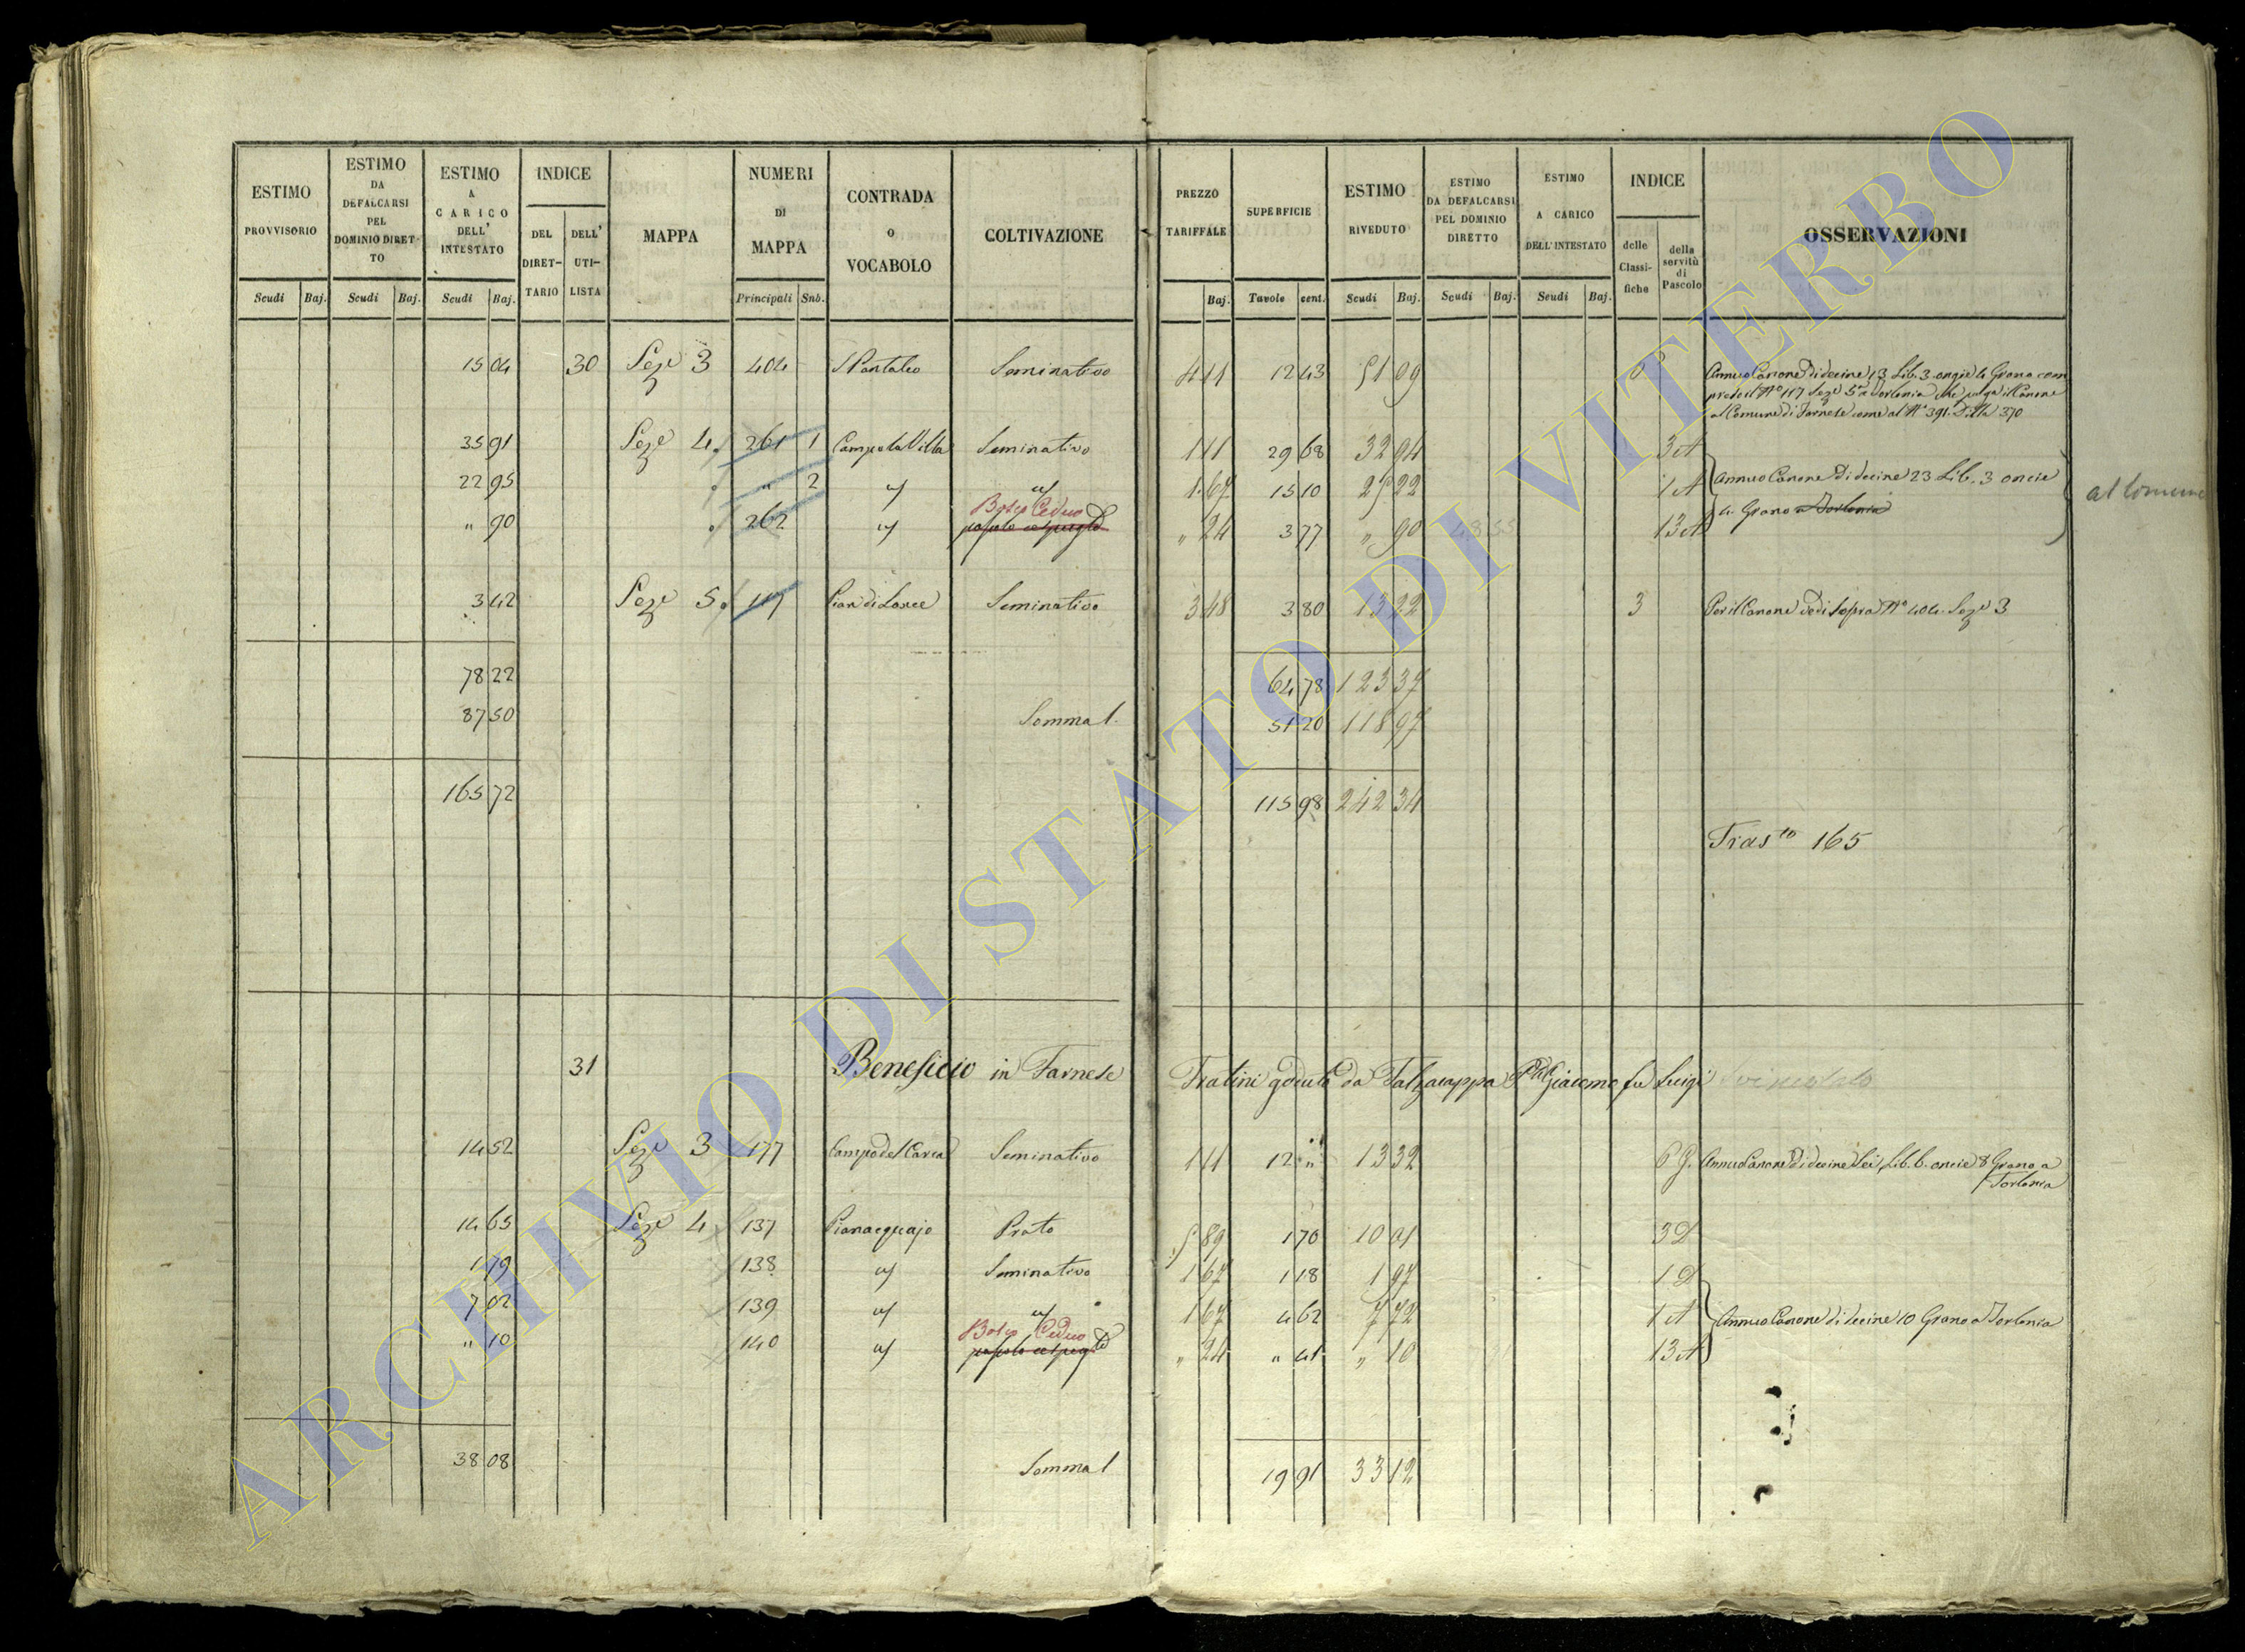 ESTIMO PROVVISORIO
ESTIMO DA DEFALCARSI PEL DOMINIO DIRET-TO
ESTIMO A CARICO DELL' INTESTATO
INDICE
DEL DIRET-TARIO
DELL' UTI-LISTA
MAPPA
NUMERI DI MAPPA
CONTRADA o VOCABOLO
COLTIVAZIONE
PREZZO TARIFFALE
SUPERFICIE
ESTIMO RIVEDUTO
ESTIMO DA DEFALCARSI PEL DOMINIO DIRETTO
ESTIMO A CARICO DELL'INTESTATO
INDICE
delle Classi-fiche
della servitù di Pascolo
OSSERVAZIONI
Scudi Baj. Scudi Baj. Scudi Baj. Principali Sub. Baj. Tavole cent. Scudi Baj. Scudi Baj. Scudi Baj.
15 04 30 Seze 3 404 S Pantaleo Seminativo 4 11 12 43 51 09
Annuo Canone di decine 13 Lib. 3 oncie 4 Grano com
preso il No 117 Seze 5a a Torlonia che paga il Canone
al Comune di Farnese come al No 391. Ditta 370
35 91 Seze 4. 261 1 Campo la Villa Seminativo 1 11 29 68 32 94 3 A
22 95 " 2 1.67 15 10 25 22 1 A
Annuo Canone di decine 23 Lib. 3 oncie
4. Grano a Torlonia
al Comune
Bosco Ceduo
" 90 262 " 24 3 77 " 90 13 A
3 42 Seze 5. 117 Pian di Lance Seminativo 3 48 3 80 13 22 3 Per il Canone vedi sopra No 404. Seze 3
78 22 64 78 123 37
87 50 Somma 1. 51 20 118 97
165 72 115 98 242 34
Trasto 165
31 Beneficio in Farnese Fratini goduto da Falzacappa Giacomo fu Luigi
14 52 Seze 3 177 Seminativo 1 11 12 " 13 32 6 G. Annuo Canone di decine sei, Lib. 6. oncie 8 Grano a
Torlonia
14 65 Seze 4 137 Pianacquajo Prato 5 89 1 70 10 01 3 D
1 79 138 Seminativo 1 67 1 18 1 97 1 D
7 02 139 1 67 4 62 7 72 1 A
Annuo Canone di decine 10 Grano a Torlonia
Bosco Ceduo
" 10 140 " 24 " 41 " 10 13 A
38 08 Somma 1 19 91 33 12
ARCHIVIO DI STATO DI VITERBO